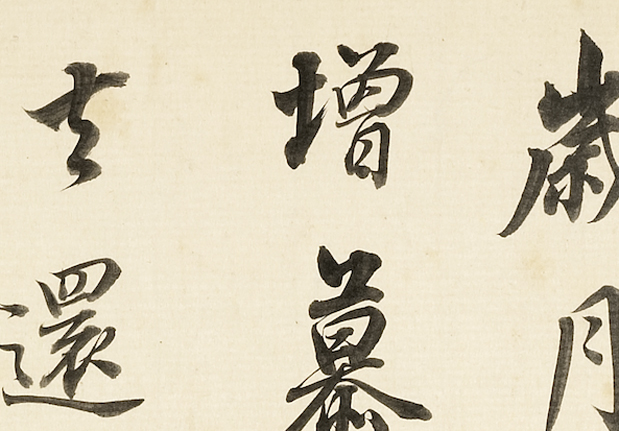 歲月
增慕
去還